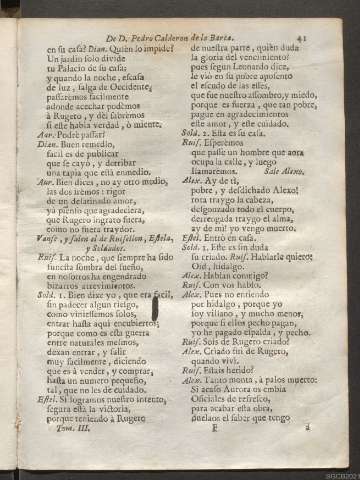 De D. Pedro Calderon de la Barca. 41
en su casa? Dian. Quièn lo impide?
Un jardin solo divide
tu Palacio de su casa;
y quando la noche, escasa
de luz, salga de Occidente,
passarèmos facilmente
adonde acechar podèmos
à Rugero, y dèl sabrèmos
si este habia verdad, ò miente.
Aur. Podrè passar?
Dian. Buen remedio,
facil es de publicar
que se cayò, y derribar
una tapia que està enmedio.
Aur. Bien dices, no ay otro medio,
las dos irèmos: rigor
de un desatinado amor,
ya pienso que agradeciera,
que Rugero ingrato fuera,
como no fuera traydor.
Vanse, y salen el de Ruisellon, Estela,
y Soldados.
Ruis. La noche, que siempre ha sido
funesta sombra del sueño,
en nosotros ha engendrado
bizarros atrevimientos.
Sold. 1. Bien dixe yo, que era facil,
sin padecer algun riesgo,
como viniessemos solos,
entrar hasta aqui encubiertos;
porque como es esta guerra
entre naturales mesmos,
dexan entrar, y salir
muy facilmente, diciendo
que es à vender, y comprar,
hasta un numero pequeño,
tal, que no les dè cuidado.
Estel. Si logramos nuestro intento,
segura està la victoria,
porque teniendo à Rugero
Tom. III.
de nuestra parte, quièn duda
la gloria del vencimiento?
pues segun Leonardo dice,
le viò en su pobre aposento
el escudo de las esses,
que fue nuestro assombro, y miedo,
porque es fuerza, que tan pobre,
pague en agradecimientos
este amor, y este cuidado.
Sold. 2. Esta es su casa.
Ruis. Esperèmos
que passe un hombre que aora
ocupa la calle, y luego
llamarèmos. Sale Alexo.
Alex. Ay de tì,
pobre, y desdichado Alexo!
rota traygo la cabeza,
desgonzado todo el cuerpo,
derrengada traygo el alma,
ay de mi! yo vengo muerto.
Estel. Entrò en casa.
Sold. 1. Este es sin duda
su criado. Ruis. Hablarle quiero:
Oid, hidalgo.
Alex. Hablan conmigo?
Ruis. Con vos hablo.
Alex. Pues no entiendo
por hidalgo, porque yo
soy villano, y mucho menos,
porque si ellos pecho pagan,
yo he pagado espalda, y pecho.
Ruis. Sois de Rugero criado?
Alex. Criado fui de Rugero,
quando vivì.
Ruis. Estais herido?
Alex. Tanto monta, à palos muerto:
Si acaso Aurora os embia
Oficiales de refresco,
para acabar esta obra,
duelaos el saber que tengo
F
à